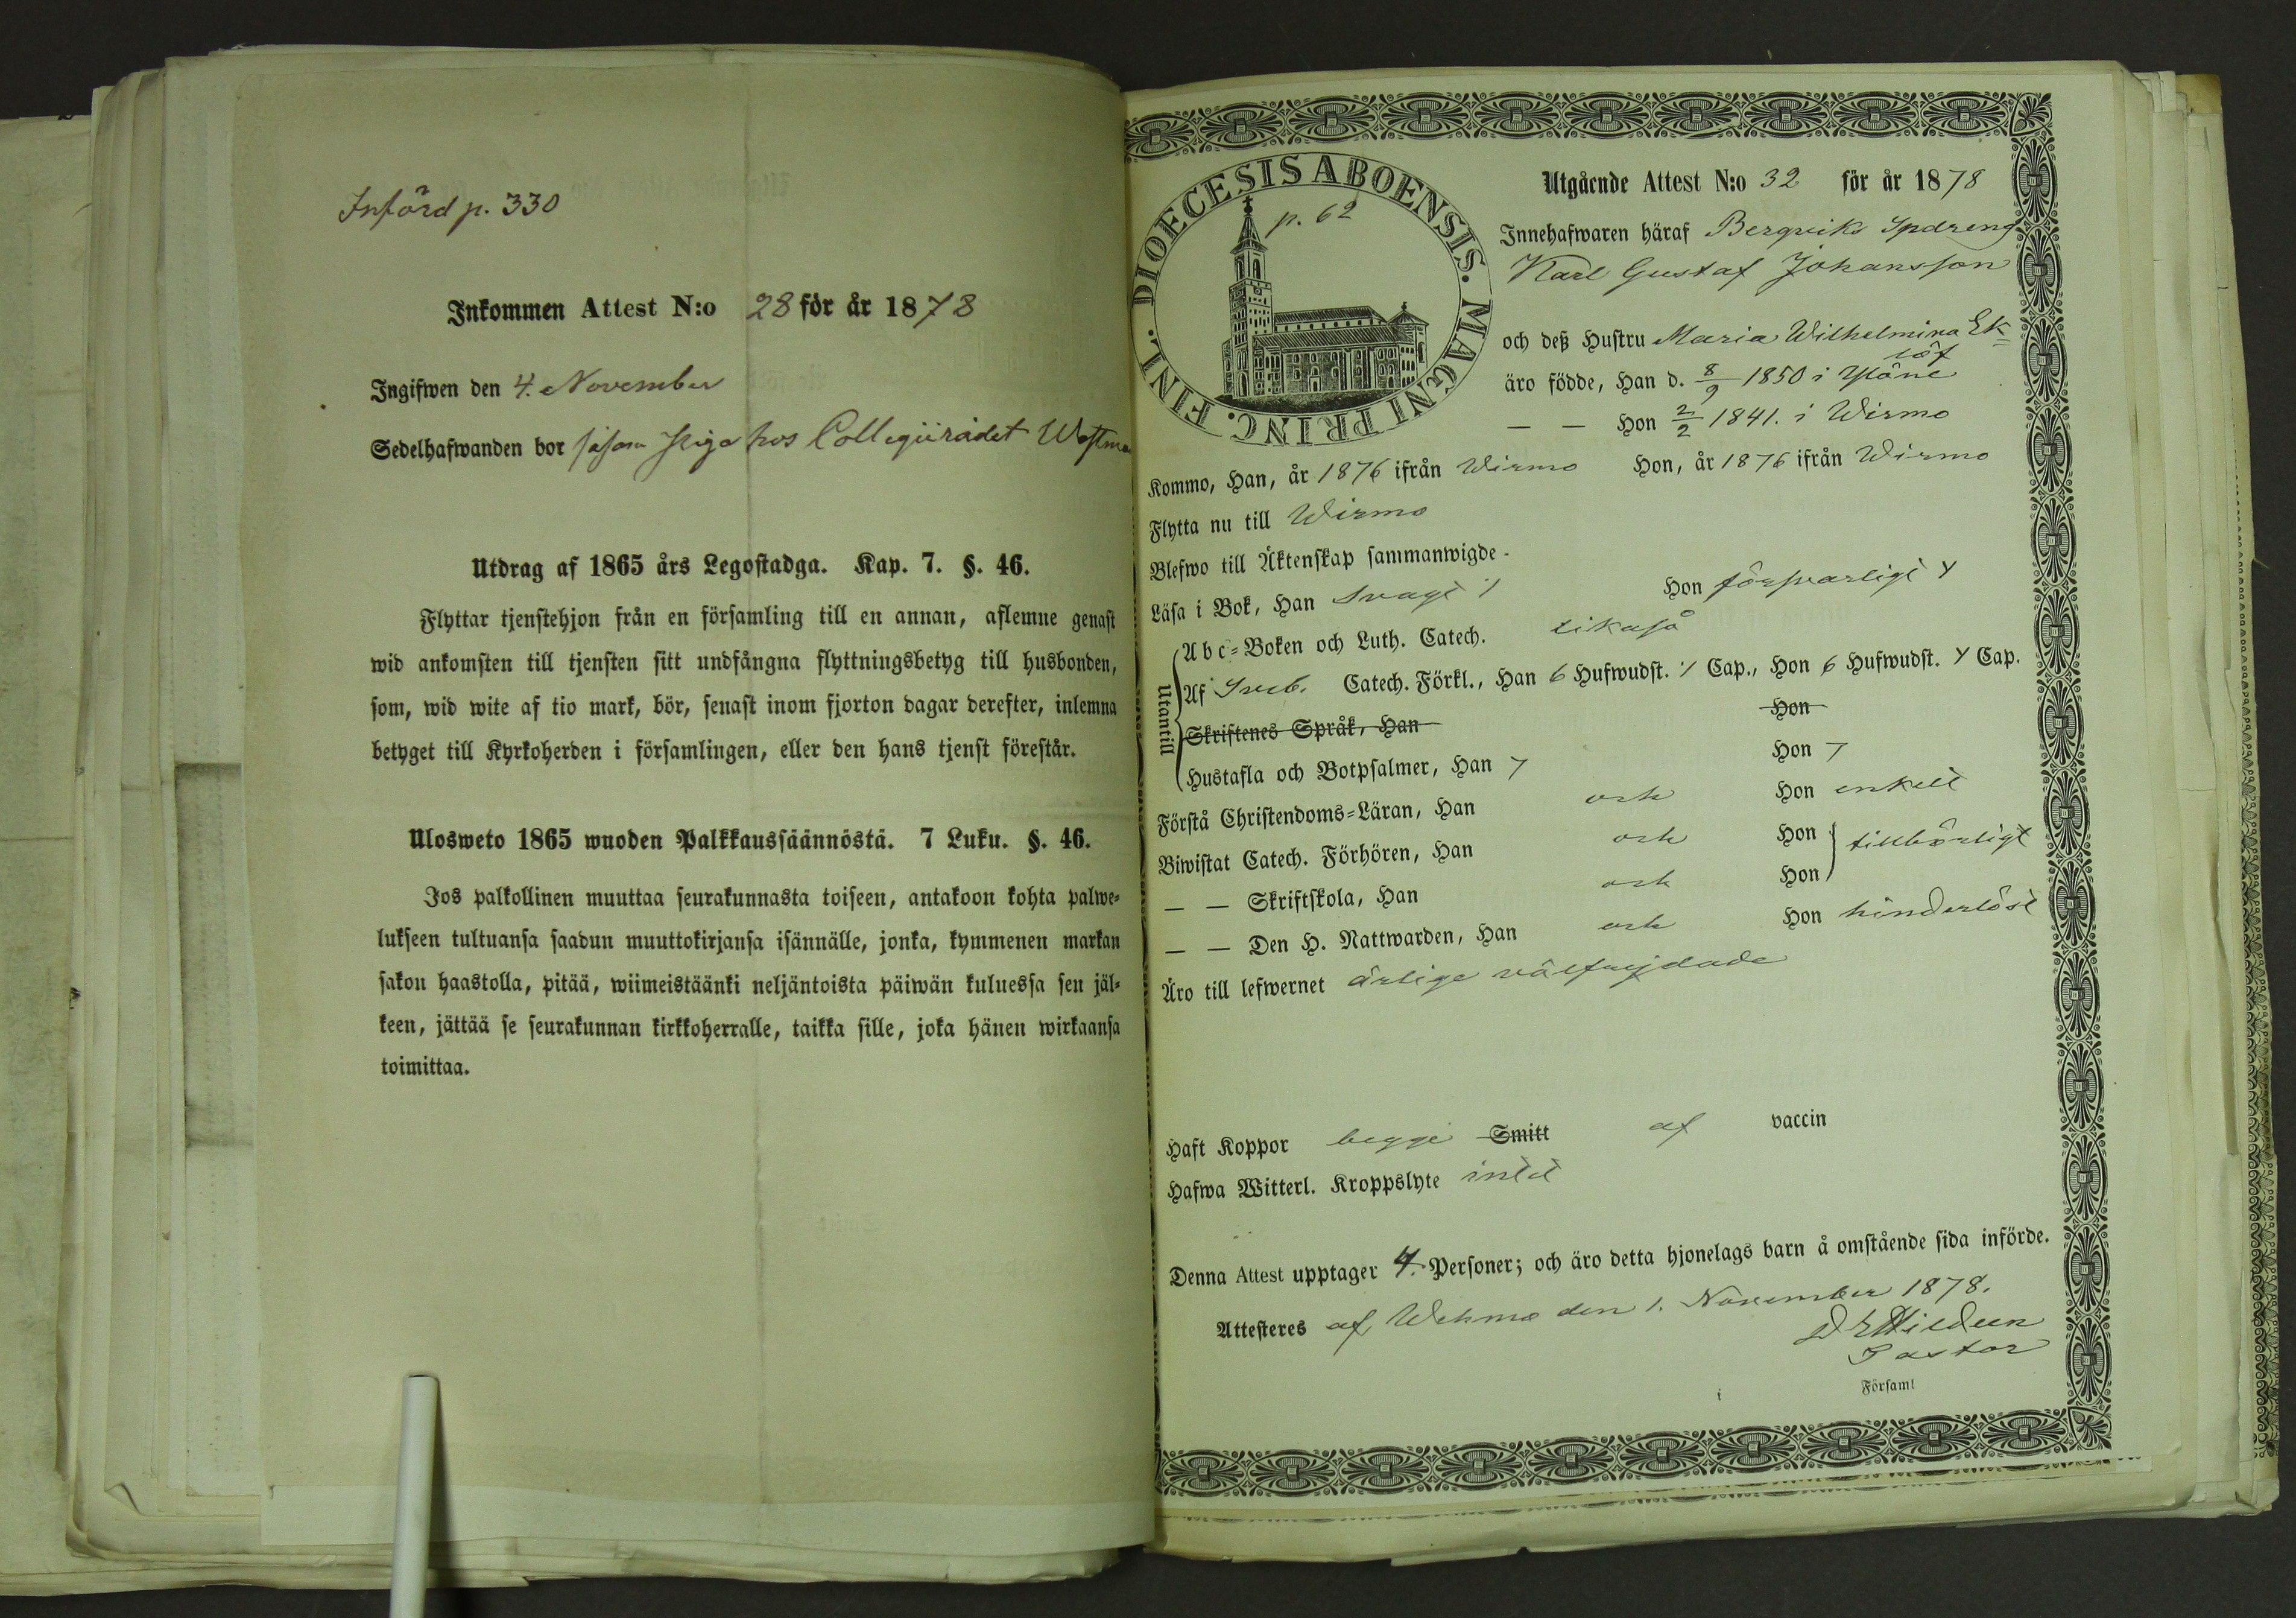 Införd p. 330
Inkommen Attest N:o 28 för år 1878
Ingifwen den 4. November
Sedelhafwanden bor såsom Piga hos Collegiirådet
Utdrag af 1865 års Legostadga. Kap. 7. §. 46.
Flyttar tjenstehjon från en församling till en annan, aflemne genast
wid ankomsten till tjensten sitt undfångna flyttningsbetyg till husbonden,
som, wid wite af tio mark, bör, senast inom fjorton dagar derefter, inlemna
betyget till Kyrkoherden i församlingen, eller den hans tjenst förestår.
Ulosweto 1865 wuoden Palkkaussäännöstä. 7 Luku. §. 46.
Jos palkollinen muuttaa seurakunnasta toiseen, antakoon kohta palwe-
lukseen tultuansa saadun muuttokirjansa isännälle, jonka, kymmenen markan
sakon haastolla, pitää, wiimeistäänki neljäntoista päiwän kuluessa sen jäl-
keen, jättää se seurakunnan kirkkoherralle, taikka sille, joka hänen wirkaansa
toimittaa.
DIOECESIS ABOENSIS. MAGNI PRINC. FINL.
p. 62
Utgående Attest N:o 32 för år 1878
Innehafwaren häraf Bergviks Spdreng
Karl Gustaf Johansson
och deß Hustru Maria Wilhelmina Ek=
löf
äro födde, Han d. 8/9 1850 i Yläne
— — Hon 2/2 1841. i Wirmo
Kommo, Han, år 1876 ifrån Wirmo Hon, år 1876 ifrån Wirmo
Flytta nu till Wirmo
Blefwo till Äktenskap sammanwigde -
Läsa i Bok, Han svagt Hon försvarligt
Utantill
Abc-Boken och Luth. Catech. likaså
Af Sveb. Catech. Förkl., Han 6 Hufwudst. Cap., Hon 6 Hufwudst. Cap.
Skriftenes Språk, Han Hon
Hustafla och Botpsalmer, Han 7 Hon 7
Förstå Christendoms-Läran, Han och Hon enkelt
Biwistat Catech. Förhören, Han och Hon tillbörligt
— — Skriftskola, Han och Hon
— — Den H. Nattwarden, Han och Hon hinderlöst
Äro till lefwernet ärlige välfrejdade
Haft Koppor begge Smitt af vaccin
Hafwa Witterl. Kroppslyte intet
Denna Attest upptager 4. Personer; och äro detta hjonelags barn å omstående sida införde.
Attesteres af Wehmo den 1. November 1878.
Hildeen
Pastor
i Församl